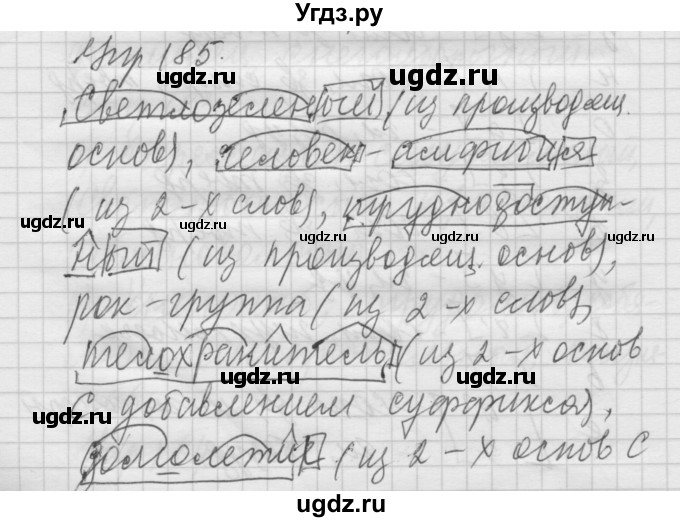 Угдз.ру
Упр 185.
Светлозеленый (из производящ.
основ), человек-амфибия
(из 2-х слов), труднодоступ-
ный (из производящ. основ),
рок-группа (из 2-х слов),
телохранитель (из 2-х основ
с добавлением суффикса),
долголетие (из 2-х основ с
ugdz.ru
ugdz.ru
ugdz.ru
ugdz.ru
ugdz.ru
ugdz.ru
ugdz.ru
ugdz.ru
ugdz.ru
ugdz.ru
ugdz.ru
ugdz.ru
ugdz.ru
ugdz.ru